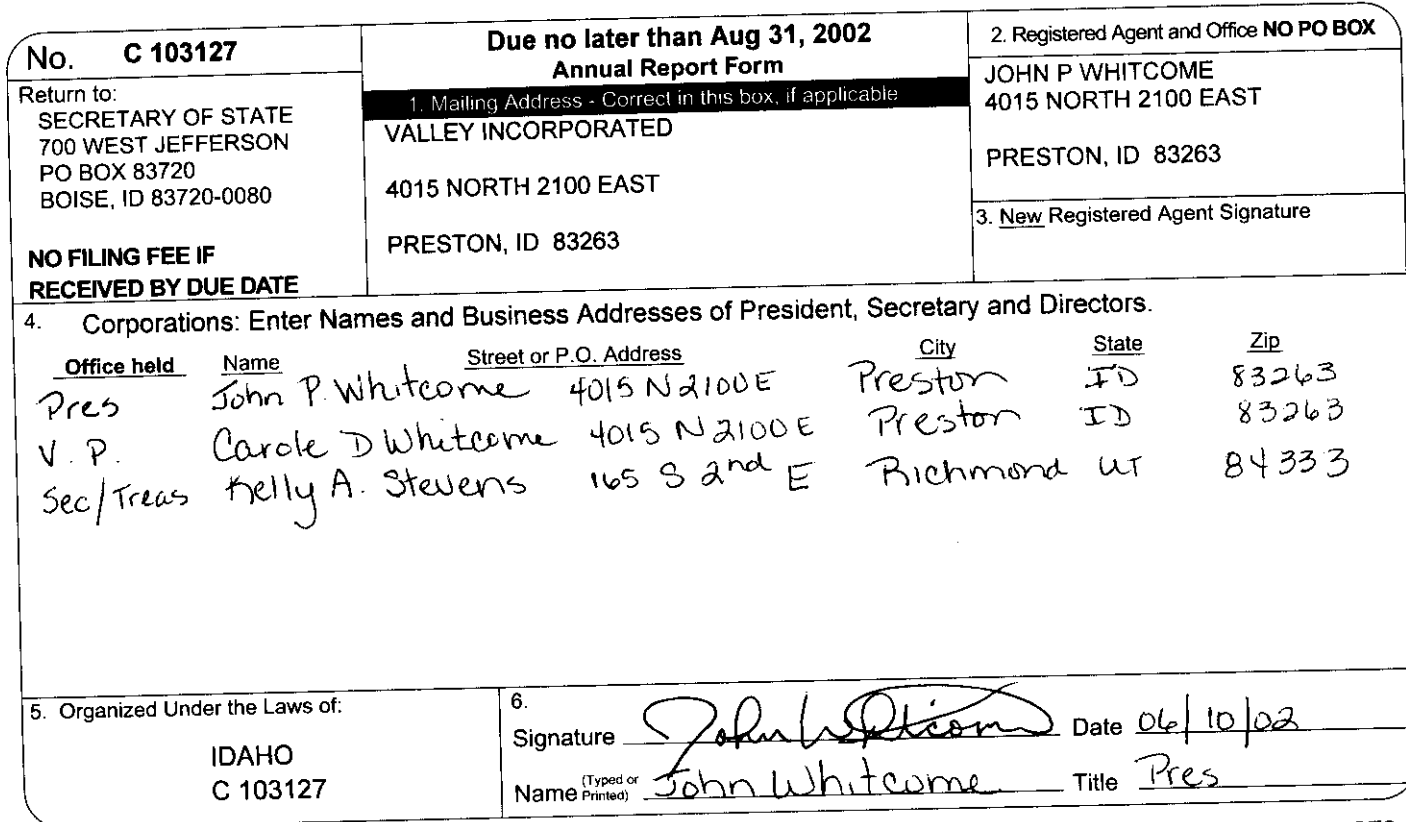 No. C 103127
Return to:
SECRETARY OF STATE
700 WEST JEFFERSON
PO BOX 83720
BOISE, ID 83720-0080
NO FILING FEE IF
RECEIVED BY DUE DATE
Due no later than Aug 31, 2002
Annual Report Form
1. Mailing Address - Correct in this box, if applicable
VALLEY INCORPORATED
4015 NORTH 2100 EAST
PRESTON, ID 83263
2. Registered Agent and Office NO PO BOX
JOHN P WHITCOME
4015 NORTH 2100 EAST
PRESTON, ID 83263
3. New Registered Agent Signature
4. Corporations: Enter Names and Business Addresses of President, Secretary and Directors.
Office held Name Street or P.O. Address City State Zip
Pres John P. Whitcome 4015 N 2100 E Preston ID 83263
V. P. Carole D Whitcome 4015 N 2100 E Preston ID 83263
Sec/Treas Kelly A. Stevens 165 S 2nd E Richmond UT 84333
5. Organized Under the Laws of:
IDAHO
C 103127
6.
Signature John Whitcom Date 06/10/02
Name (Typed or Printed) John Whitcome Title Pres